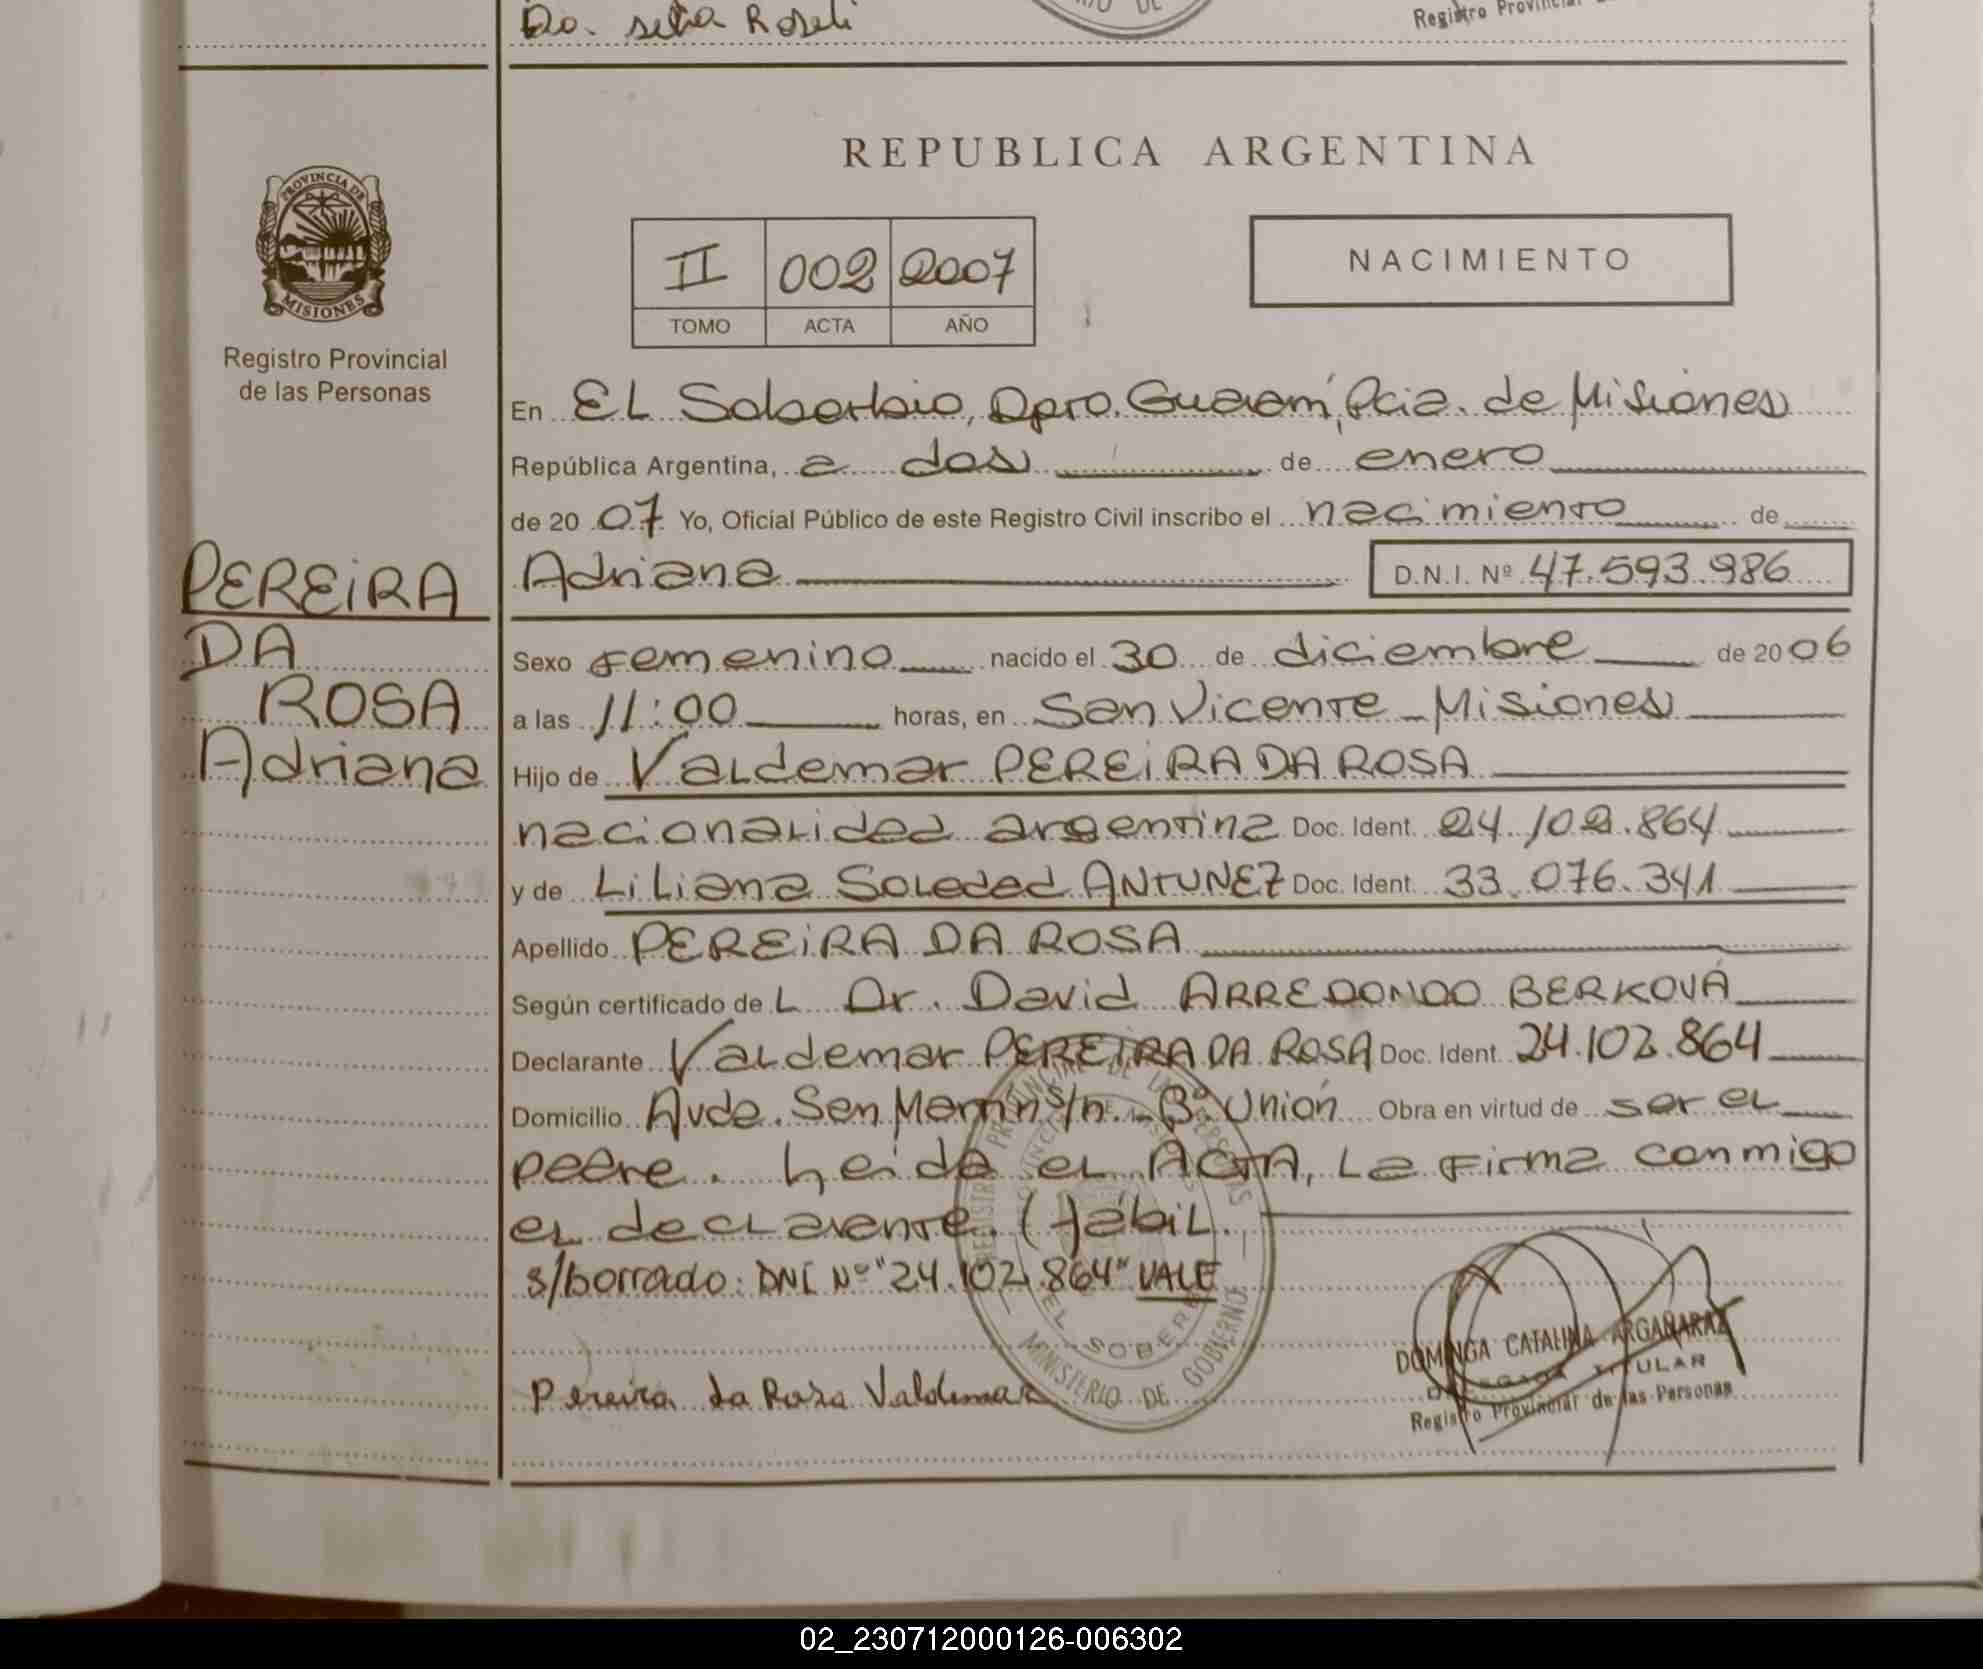 Da. silva Roseli
Registro Provincial
REPUBLICA ARGENTINA
PROVINCIA DE
MISIONES
Registro Provincial
de las Personas
II 002 2007
TOMO ACTA AÑO
NACIMIENTO
En EL Soberbio, Dpto. Guaraní, Pcia. de Misiones
República Argentina, a dos de enero
de 2007 Yo, Oficial Público de este Registro Civil inscribo el nacimiento de
Adriana D.N.I. Nº 47.593.986
PEREIRA
DA
ROSA
Adriana
Sexo Femenino nacido el 30 de diciembre de 2006
a las 11:00 horas, en San Vicente - Misiones
Hijo de Valdemar PEREIRA DA ROSA
nacionalidad argentina Doc. Ident. 24.102.864
y de Liliana Soledad ANTUNEZ Doc. Ident. 33.076.341
Apellido PEREIRA DA ROSA
Según certificado del Dr. David ARREDONDO BERKOVÁ
Declarante Valdemar PEREIRA DA ROSA Doc. Ident. 24.102.864
Domicilio Avda. San Martín s/n. Bº Unión Obra en virtud de ser el
padre. Leida el ACTA, La firma conmigo
el declarante. Hábil.
s/borrado: DNI Nº "24.102.864" VALE
Pereira da Rosa Valdemar
MINISTERIO DE GOBIERNO
DOMINGA CATALINA ARGAÑARAZ
TITULAR
Registro Provincial de las Personas
02_230712000126-006302